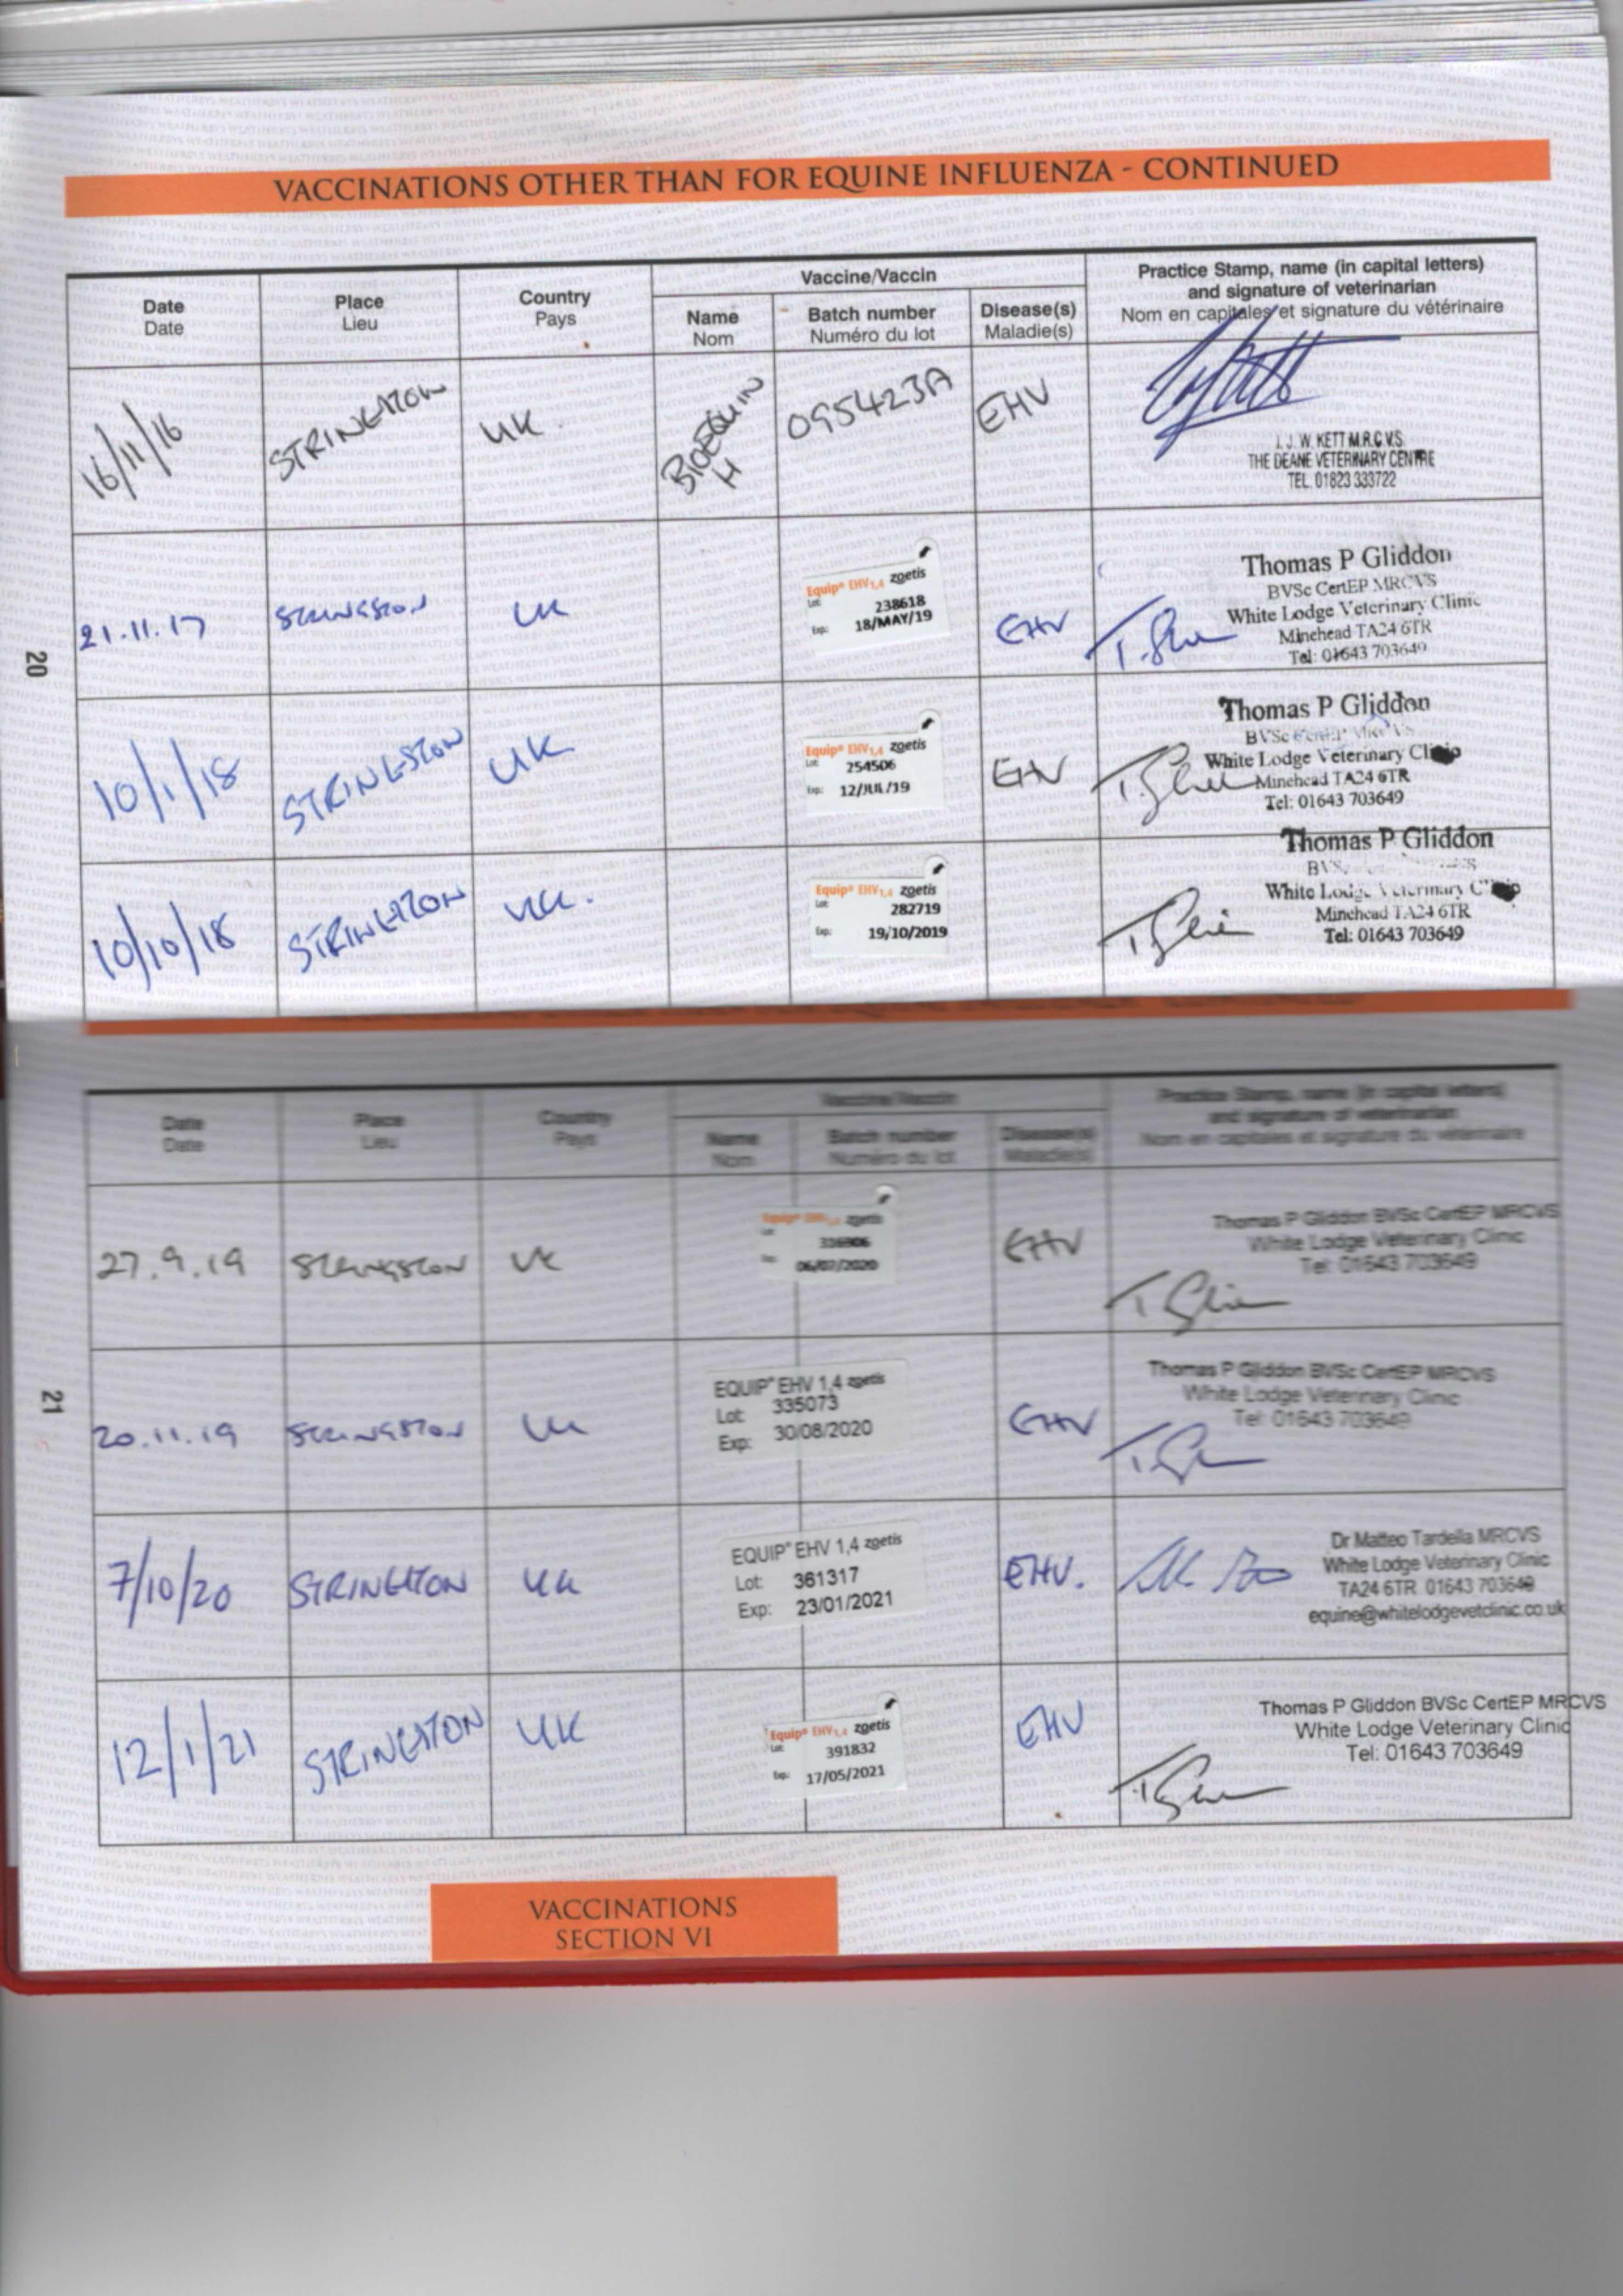 VACCINATIONS OTHER THAN FOR EQUINE INFLUENZA - CONTINUED
Date
Date
Place
Lieu
Country
Pays
Vaccine/Vaccin
Name
Nom
Batch number
Numéro du lot
Disease(s)
Maladie(s)
Practice Stamp, name (in capital letters)
and signature of veterinarian
Nom en capitales et signature du vétérinaire
16/11/16
STRINGSTON
UK.
BIOEQUIN
H
095423A
EHV
J. W. KETT M.R.C.V.S.
THE DEANE VETERINARY CENTRE
TEL. 01823 333722
21.11.17
STRINGSTON
UK
Equip® EHV1,4 zoetis
Lot: 238618
Exp: 18/MAY/19
EHV
Thomas P Gliddon
BVSc CertEP MRCVS
White Lodge Veterinary Clinic
Minehead TA24 6TR
Tel: 01643 703649
20
10/1/18
STRINGSTON
UK
Equip® EHV1,4 zoetis
Lot: 254506
Exp: 12/JUL/19
EHV
Thomas P Gliddon
BVSc CertEP MRCVS
White Lodge Veterinary Clinic
Minehead TA24 6TR
Tel: 01643 703649
10/10/18
STRINGSTON
UK.
Equip® EHV1,4 zoetis
Lot: 282719
Exp: 19/10/2019
Thomas P Gliddon
White Lodge Veterinary Clinic
Minehead TA24 6TR
Tel: 01643 703649
Date
Date
Place
Lieu
Country
Pays
Vaccine/Vaccin
Name
Nom
Batch number
Numéro du lot
Disease(s)
Maladie(s)
Practice Stamp, name (in capital letters)
and signature of veterinarian
Nom en capitales et signature du vétérinaire
27.9.19
STRINGSTON
UK
Equip® EHV1,4 zoetis
06/07/2020
EHV
Thomas P Gliddon BVSc CertEP MRCVS
White Lodge Veterinary Clinic
Tel: 01643 703649
21
20.11.19
STRINGSTON
UK
EQUIP® EHV 1,4 zoetis
Lot: 335073
Exp: 30/08/2020
EHV
Thomas P Gliddon BVSc CertEP MRCVS
White Lodge Veterinary Clinic
Tel: 01643 703649
7/10/20
STRINGSTON
UK
EQUIP® EHV 1,4 zoetis
Lot: 361317
Exp: 23/01/2021
EHV.
Dr Matteo Tardella MRCVS
White Lodge Veterinary Clinic
TA24 6TR 01643 703649
equine@whitelodgevetclinic.co.uk
12/1/21
STRINGSTON
UK
Equip® EHV1,4 zoetis
Lot: 391832
Exp: 17/05/2021
EHV
Thomas P Gliddon BVSc CertEP MRCVS
White Lodge Veterinary Clinic
Tel: 01643 703649
VACCINATIONS
SECTION VI